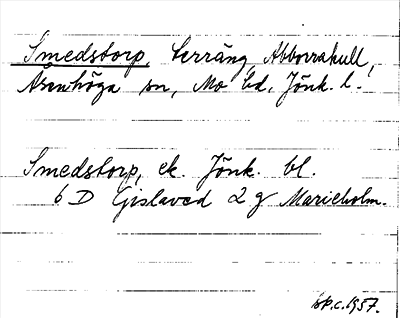 Smedstorp, terräng, Abborrakull,
Åsenhöga sn, Mo hd, Jönk. l.
Smedstorp, ek. Jönk. bl.
6 D Gislaved 2 g Marieholm.
1957.